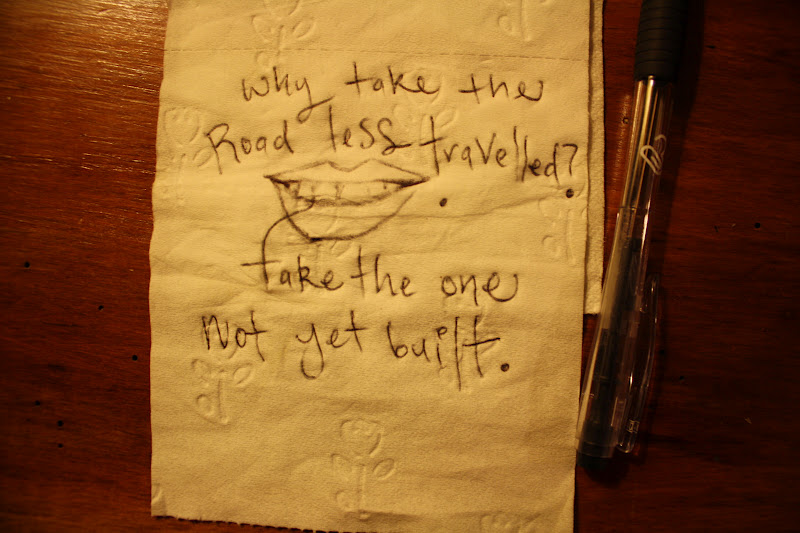 why take the
Road less travelled?
take the one
Not yet built.